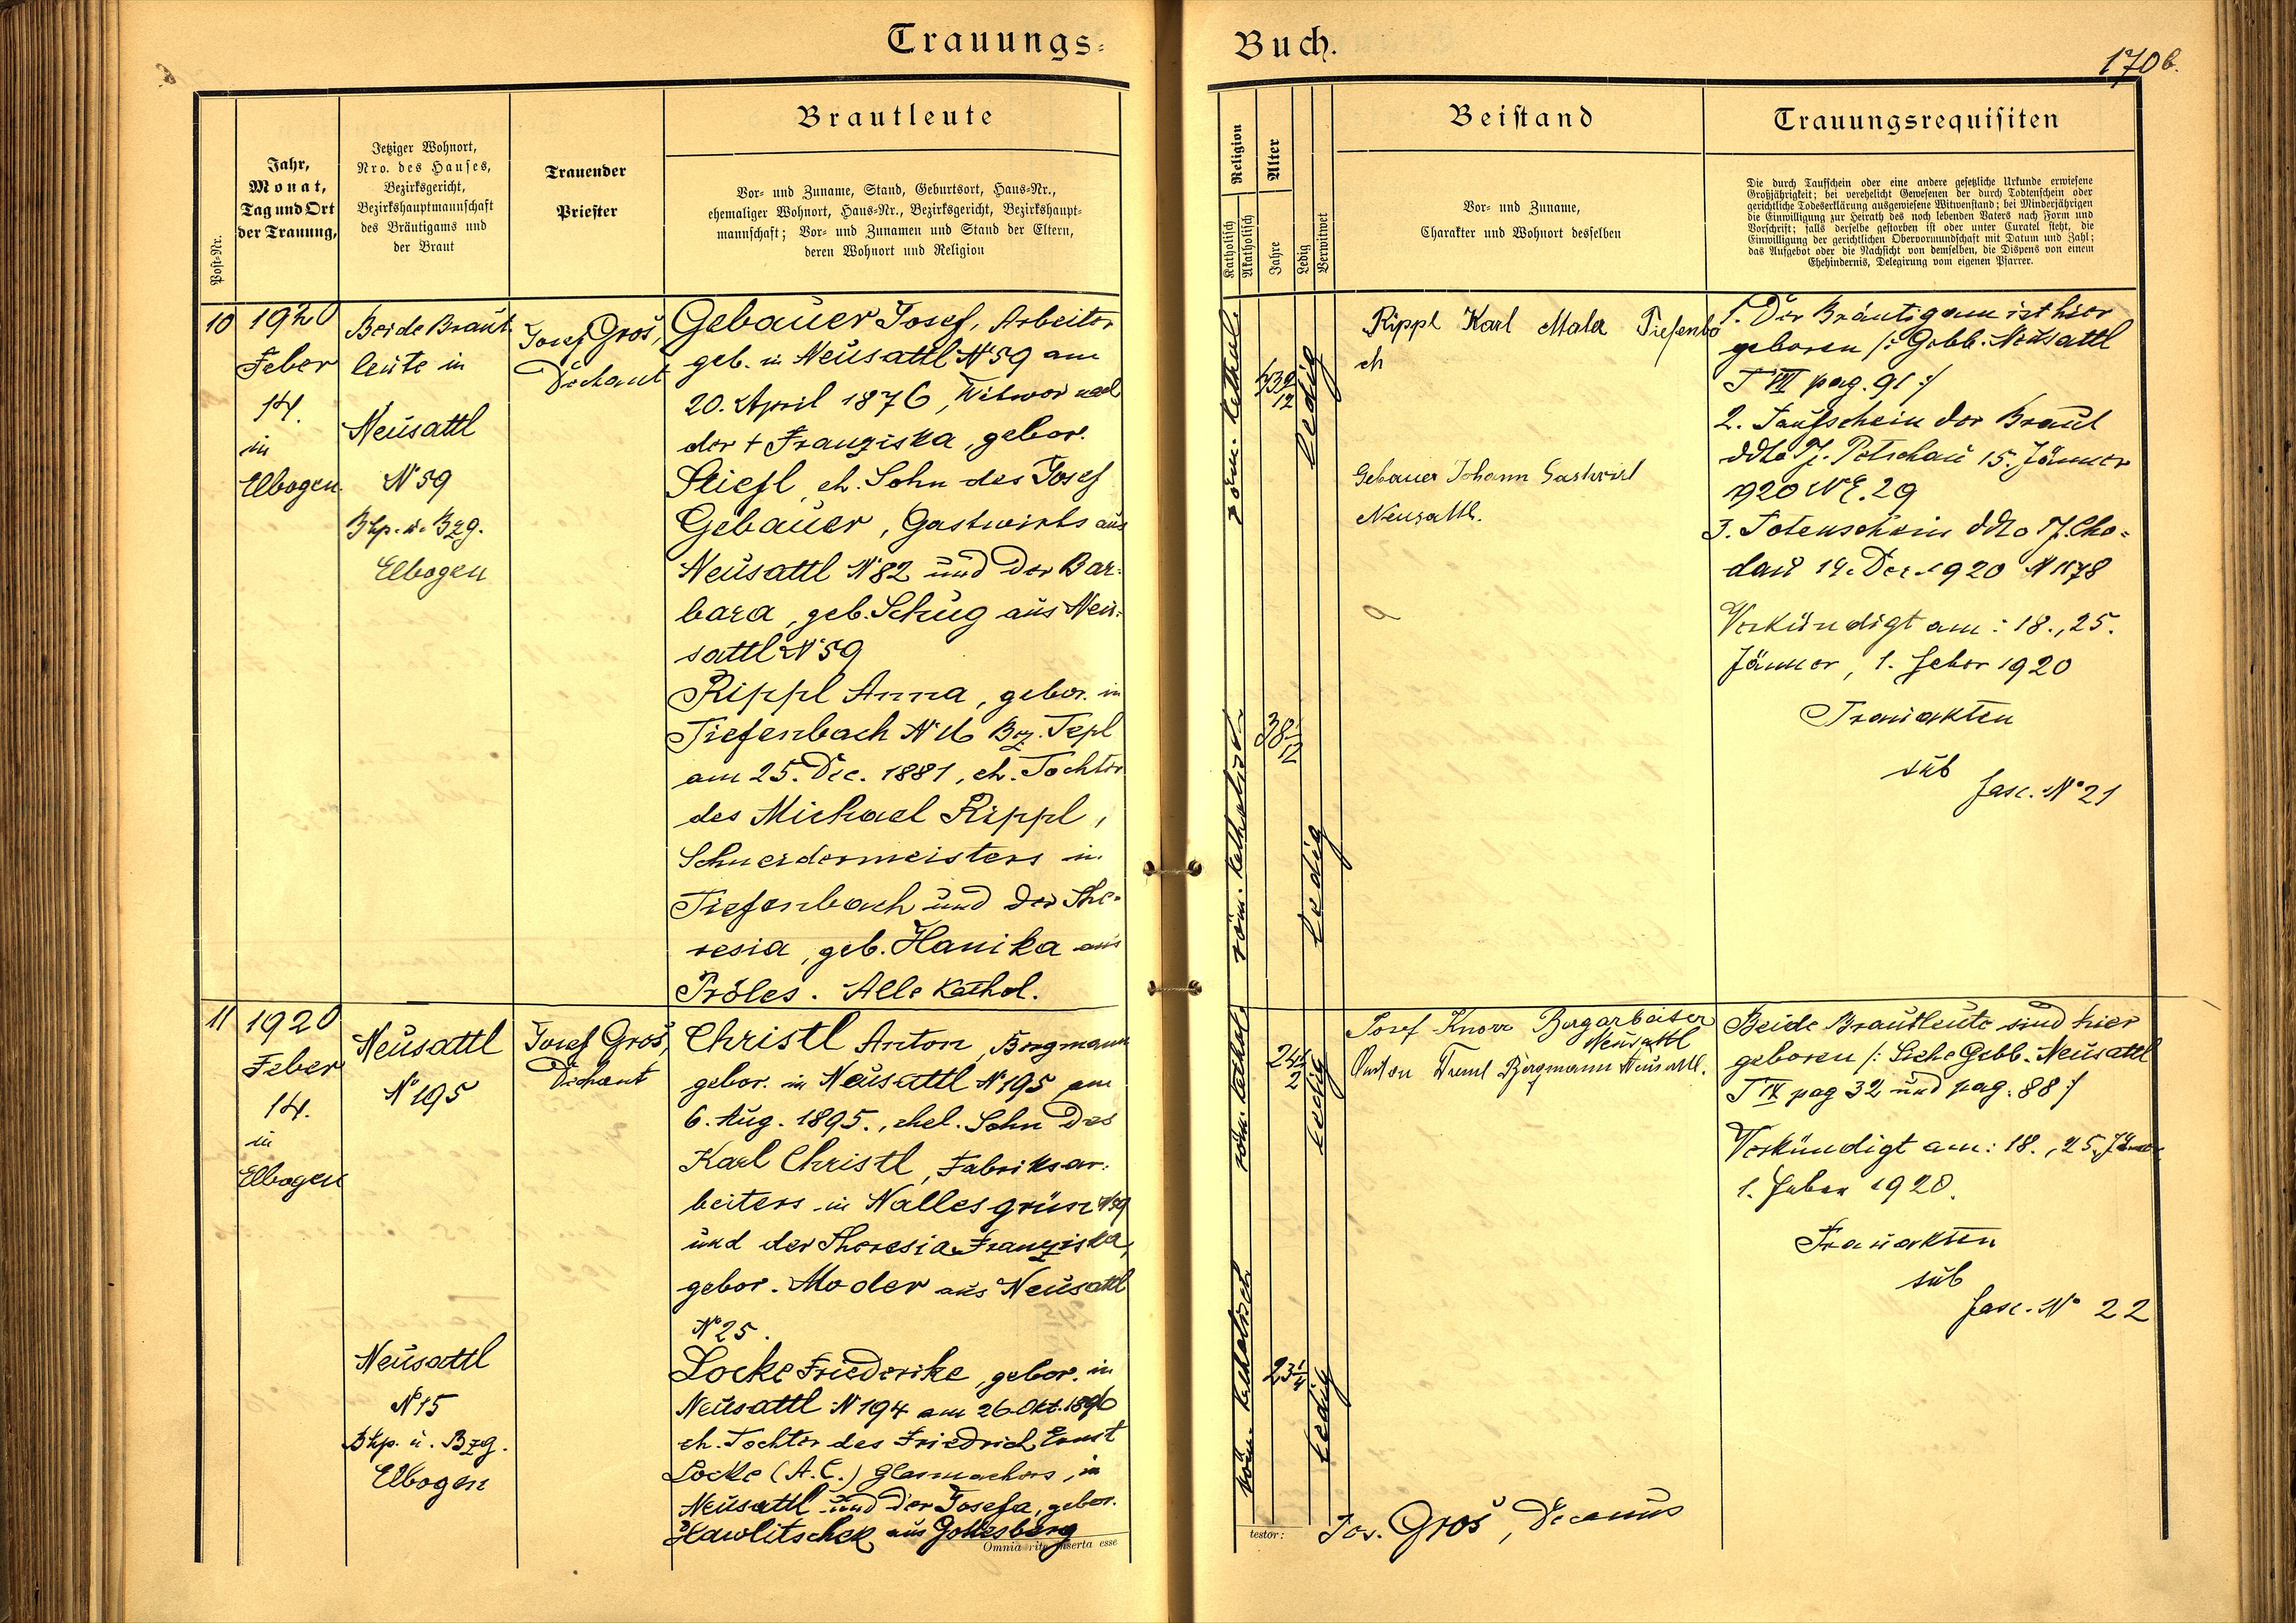 Trauungs-
Buch.
170 b.
Post-Nr.
Jahr,
Monat,
Tag und Ort
der Trauung,
Jetziger Wohnort,
Nro. des Hauses,
Bezirksgericht,
Bezirkshauptmannschaft
des Bräutigams und
der Braut
Trauender
Priester
Brautleute
Vor- und Zuname, Stand, Geburtsort, Haus-Nr.,
ehemaliger Wohnort, Haus-Nr., Bezirksgericht, Bezirkshaupt-
mannschaft; Vor- und Zunamen und Stand der Eltern,
deren Wohnort und Religion
Religion
Katholisch
Akatholisch
Alter
Jahre
Ledig
Verwitwet
Beistand
Vor- und Zuname,
Charakter und Wohnort desselben
Trauungsrequisiten
Die durch Taufschein oder eine andere gesetzliche Urkunde erwiesene
Großjährigkeit; bei verehelicht Gewesenen der durch Todtenschein oder
gerichtliche Todeserklärung ausgewiesene Witwenstand; bei Minderjährigen
die Einwilligung zur Heirath des noch lebenden Vaters nach Form und
Vorschrift; falls derselbe gestorben ist oder unter Curatel steht, die
Einwilligung der gerichtlichen Obervormundschaft mit Datum und Zahl;
das Aufgebot oder die Nachsicht von demselben, die Dispens von einem
Ehehindernis, Delegirung vom eigenen Pfarrer.
10
1920
Feber
14.
in
Elbogen.
Beide Braut-
leute in
Neusattl
N° 59
Bhp. u. Bzg.
Elbogen
Josef Groš,
Dechant
Gebauer Josef, Arbeiter
geb. in Neusattl N° 59 am
20. April 1876, Witwer nach
der + Franziska, gebor.
Stiefl, eh. Sohn des Josef
Gebauer, Gastwirts aus
Neusattl N° 82 und der Bar-
bara, geb. Schug aus Neu-
sattl N° 59
Rippl Anna, gebor. in
Tiefenbach N° 16 Bez. Tepl
am 25. Dec. 1881, eh. Tochter
des Michael Rippl,
Schneidermeisters in
Tiefenbach und der The-
resia, geb. Hanika aus
Pröles. Alle kathol.
röm. kathol.
43 9/12
ledig
röm. katholisch
38 1/12
ledig
Rippl Karl Maler Tiefenba
ch
Gebauer Johann Gastwirt
Neusattl.
1. Der Bräutigam ist hier
geboren /: Gebb. Neusattl
T VII pag. 91 :/
2. Taufschein der Braut
ddto Pf. Petschau 15. Jänner
1920 N.E. 29
3. Totenschein ddto Pf. Cho-
dau 14. Dec. 1920 N 1178
Verkündigt am: 18., 25.
Jänner, 1. Feber 1920
Trauakten
sub
fasc. N° 21
11
1920
Feber
14.
in
Elbogen
Neusattl
N° 195
Josef Groš,
Dechant
Christl Anton, Bergmann
gebor. in Neusattl N° 195 am
6. Aug. 1895., ehel. Sohn des
Karl Christl, Fabriksar-
beiters in Nallesgrün N° 9
und der Theresia Franziska,
gebor. Moder aus Neusattl
N° 25.
Neusattl
N° 15
Bhp. u. Bzg.
Elbogen
Locke Friederike, gebor. in
Neusattl N° 194 am 26 Okt. 1896
eh. Tochter des Friedrich Ernst
Locke (A.C.) Glasmachers, in
Neusattl und der Josefa, gebor.
Hawlitschek aus Gottesberg
Omnia rite inserta esse
röm. kathol.
24 1/2
ledig
röm. katholisch
23 1/4
ledig
Josef Knorr Bergarbeiter
Neusattl
Anton Bergmann Neusattl.
Beide Brautleute sind hier
geboren /: Siehe Gebb. Neusattl
T IX pag 32 und pag: 88 :/
Verkündigt am: 18., 25. Jänner
1. Feber 1920.
Trauakten
sub
fasc. N° 22
testor:
Jos. Groš, Decanus